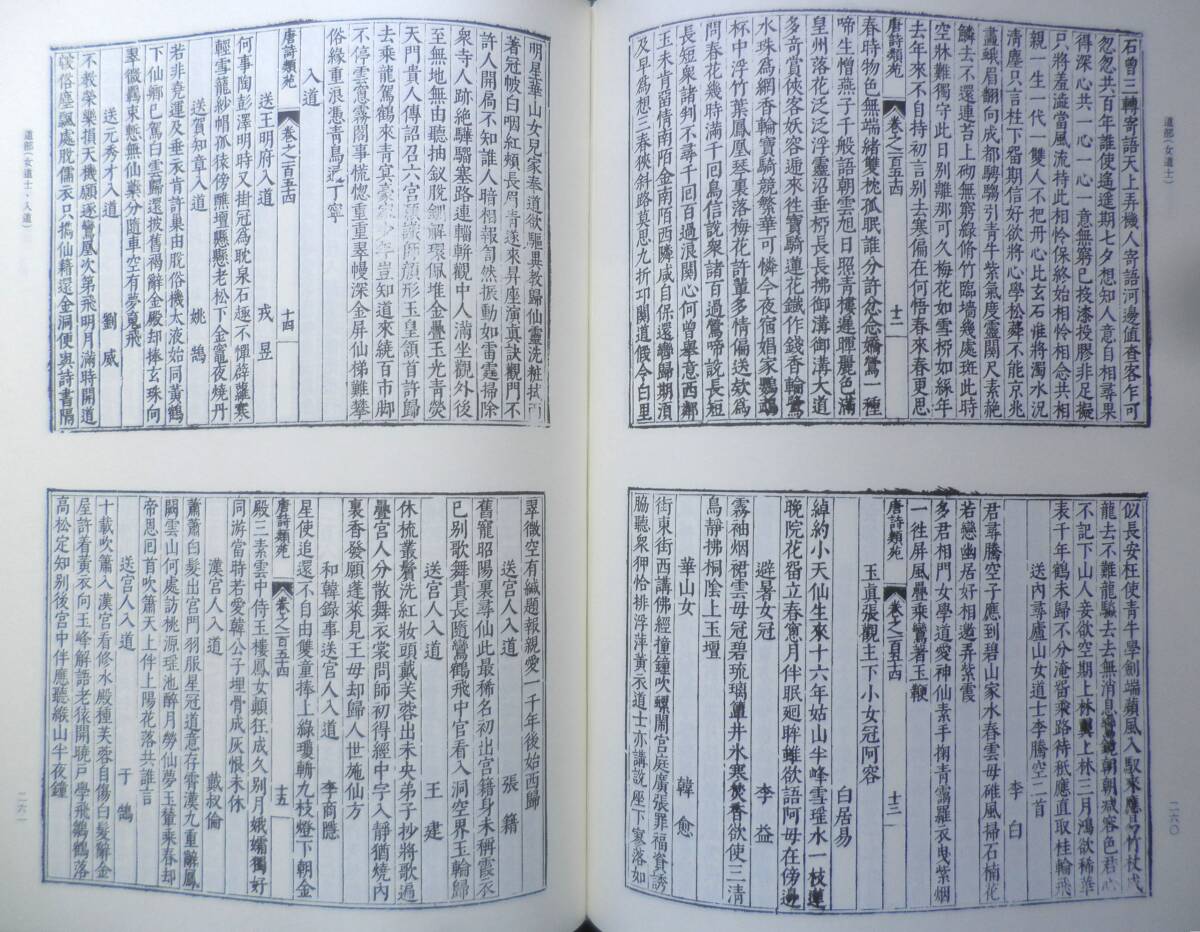 道部(女道士)
石曾三轉寄語天上弄幾人寄語河邊值查客乍可
忽忽共百年誰使遙遙期七夕想知人意自相尋果
得深心共一心一心一意無窮已投漆投膠非足擬
只將羞澁當風流持此相憐保終始相憐相念共相
親一生一代一雙人不把丹心比玄石惟將濁水況
清塵只言柱下留期信好欲將心學松蘖不能京兆
畫蛾眉翻向成都騁騶引青牛紫氣度靈關尺素
鱗去不還連苔上砌無窮綠修竹臨墻幾處斑此時
空牀難獨守此日別離那可久梅花如雪柳如絲年
去年來不自持初言別去寒偏在何悟春來春更思
唐詩類苑 卷之一百五十四 十二
春時物色無端緒雙枕孤眠誰分許忿念嬌鶯一種
啼生憎燕子千般語朝雲旭日照青樓遲暉麗色滿
皇州落花泛泛浮靈沼垂柳長長拂御溝御溝大道
多奇賞俠客妖容遞來徃寶騎連花鐵作錢香輪鶩
水珠為網香輪寶騎競繁華可憐今夜宿娼家鸚鵡
杯中浮竹葉鳳凰琴裏落梅花許輩多情偏送欵為
問春花幾時滿千回鳥信說衆諸百過鶯啼說長短
長短衆諸判不尋千回百過浪關心何曾舉意西鄰
玉未肯留情南陌金南陌西隣咸自保還轡歸期湏
及早為想三春狹斜路莫思九折卭關道假令白里
似長安枉使青牛學劍端蘋風入馭來應易竹杖成
龍去不難龍驂去去無消息鸞鏡朝朝減容色君心
不記下山人妾欲空期上林翼上林三月鴻欲稀華
表千年鶴未歸不分淹留乘路待秖應直取桂輪飛
送內尋廬山女道士李騰空二首 李白
君尋騰空子應到碧山家水舂雲母碓風掃石楠花
若戀幽居好相邀弄紫霞
多君相門女學道愛神仙素手掬青靄羅衣曳紫烟
一徃屏風疊乘鸞著玉鞭
唐詩類苑 卷之一百五十四 十三
玉真張觀主下小女冠阿容 白居易
綽約小天仙生來十六年姑山半峰雪瑤水一枝蓮
晚院花留立春愈月伴眠廻眸雖欲語阿母在傍邊
避暑女冠 李益
霧袖烟裙雲母冠碧琉璃簟井氷寒焚香欲使三清
鳥靜拂桐陰上玉壇
華山女 韓愈
街東街西講佛經撞鐘吹螺鬧宮庭廣張罪福資誘
脇聽衆狎恰排浮萍黃衣道士亦講說座下寥落如
二六〇
道部(女道士、入道)
明星華山女兒家奉道欲驅異教歸仙靈洗粧拭面
著冠帔白咽紅頰長眉青遂來昇座演真訣觀門不
許人開扃不知誰人暗相報訇然振動如雷霆掃除
衆寺人跡絶驊騮塞路連輜軿觀中人滿坐觀外後
至無地無由聽抽釵脫釧解環佩堆金疊玉光青熒
天門貴人傳詔召六宮願識師顔形玉皇頷首許歸
去乘龍駕鶴來青冥豪家少年豈知道來繞百帀脚
不停雲窓霧閣事慌惚重重翠幔深金屏仙梯難攀
俗緣重浪憑青鳥通丁寧
入道
唐詩類苑 卷之一百五十四 十四
送王明府入道 戎昱
何事陶彭澤明時又掛冠為耽泉石趣不憚薜蘿寒
輕雪籠紗帽孤猿傍醮壇懸懸老松下金竈夜燒丹
送賀知章入道 姚鵠
若非堯運及垂衣肯許巢由脫俗機太液始同黃鶴
下仙鄉已駕白雲歸還披舊褐辭金殿却捧玄珠向
翠微羈束慙無仙藥分隨車空有夢魂飛
送元秀才入道 劉威
不教榮樂損天機願逐鸞凰次第飛明月滿時開道
帔俗塵飄處脫儒衣只攜仙籍還金洞便與詩書隔
翠微空有緘題報親愛一千年後始西歸
送宮人入道 張籍
舊寵昭陽裏尋仙此最稀名初出宮籍身未稱霞衣
已别歌舞貴長隨鸞鶴飛中官看入洞空界玉輪歸
送宮人入道 王建
休梳叢鬢洗紅妝頭戴芙蓉出未央弟子抄將歌遍
疊宮人分散舞衣裳問師初得經中字入靜猶燒內
裏香發願蓬萊見王母却歸人世施仙方
和韓錄事送宮人入道 李商隱
星使追還不自由雙童捧上綠瓊輈九枝燈下朝金
唐詩類苑 卷之一百五十四 十五
殿三素雲中侍玉樓鳳女顛狂成久别月娥孀獨好
同游當時若愛韓公子埋骨成灰恨未休
漢宮人入道 戴叔倫
蕭蕭白髮出宮門羽服星冠道意存霄漢九重辭鳳
闕雲山何處訪桃源瑤池醉月勞仙夢玉輦乘春却
帝恩回首吹簫天上伴上陽花落共誰言
送宮人入道 于鵠
十載吹簫入漢宮看修水殿種芙蓉自傷白髮辭金
屋許着黄衣向玉峰解語老猿開曉戶學飛鶵鶴落
高松定知别後宮中伴應聽緱山半夜鐘
二六一